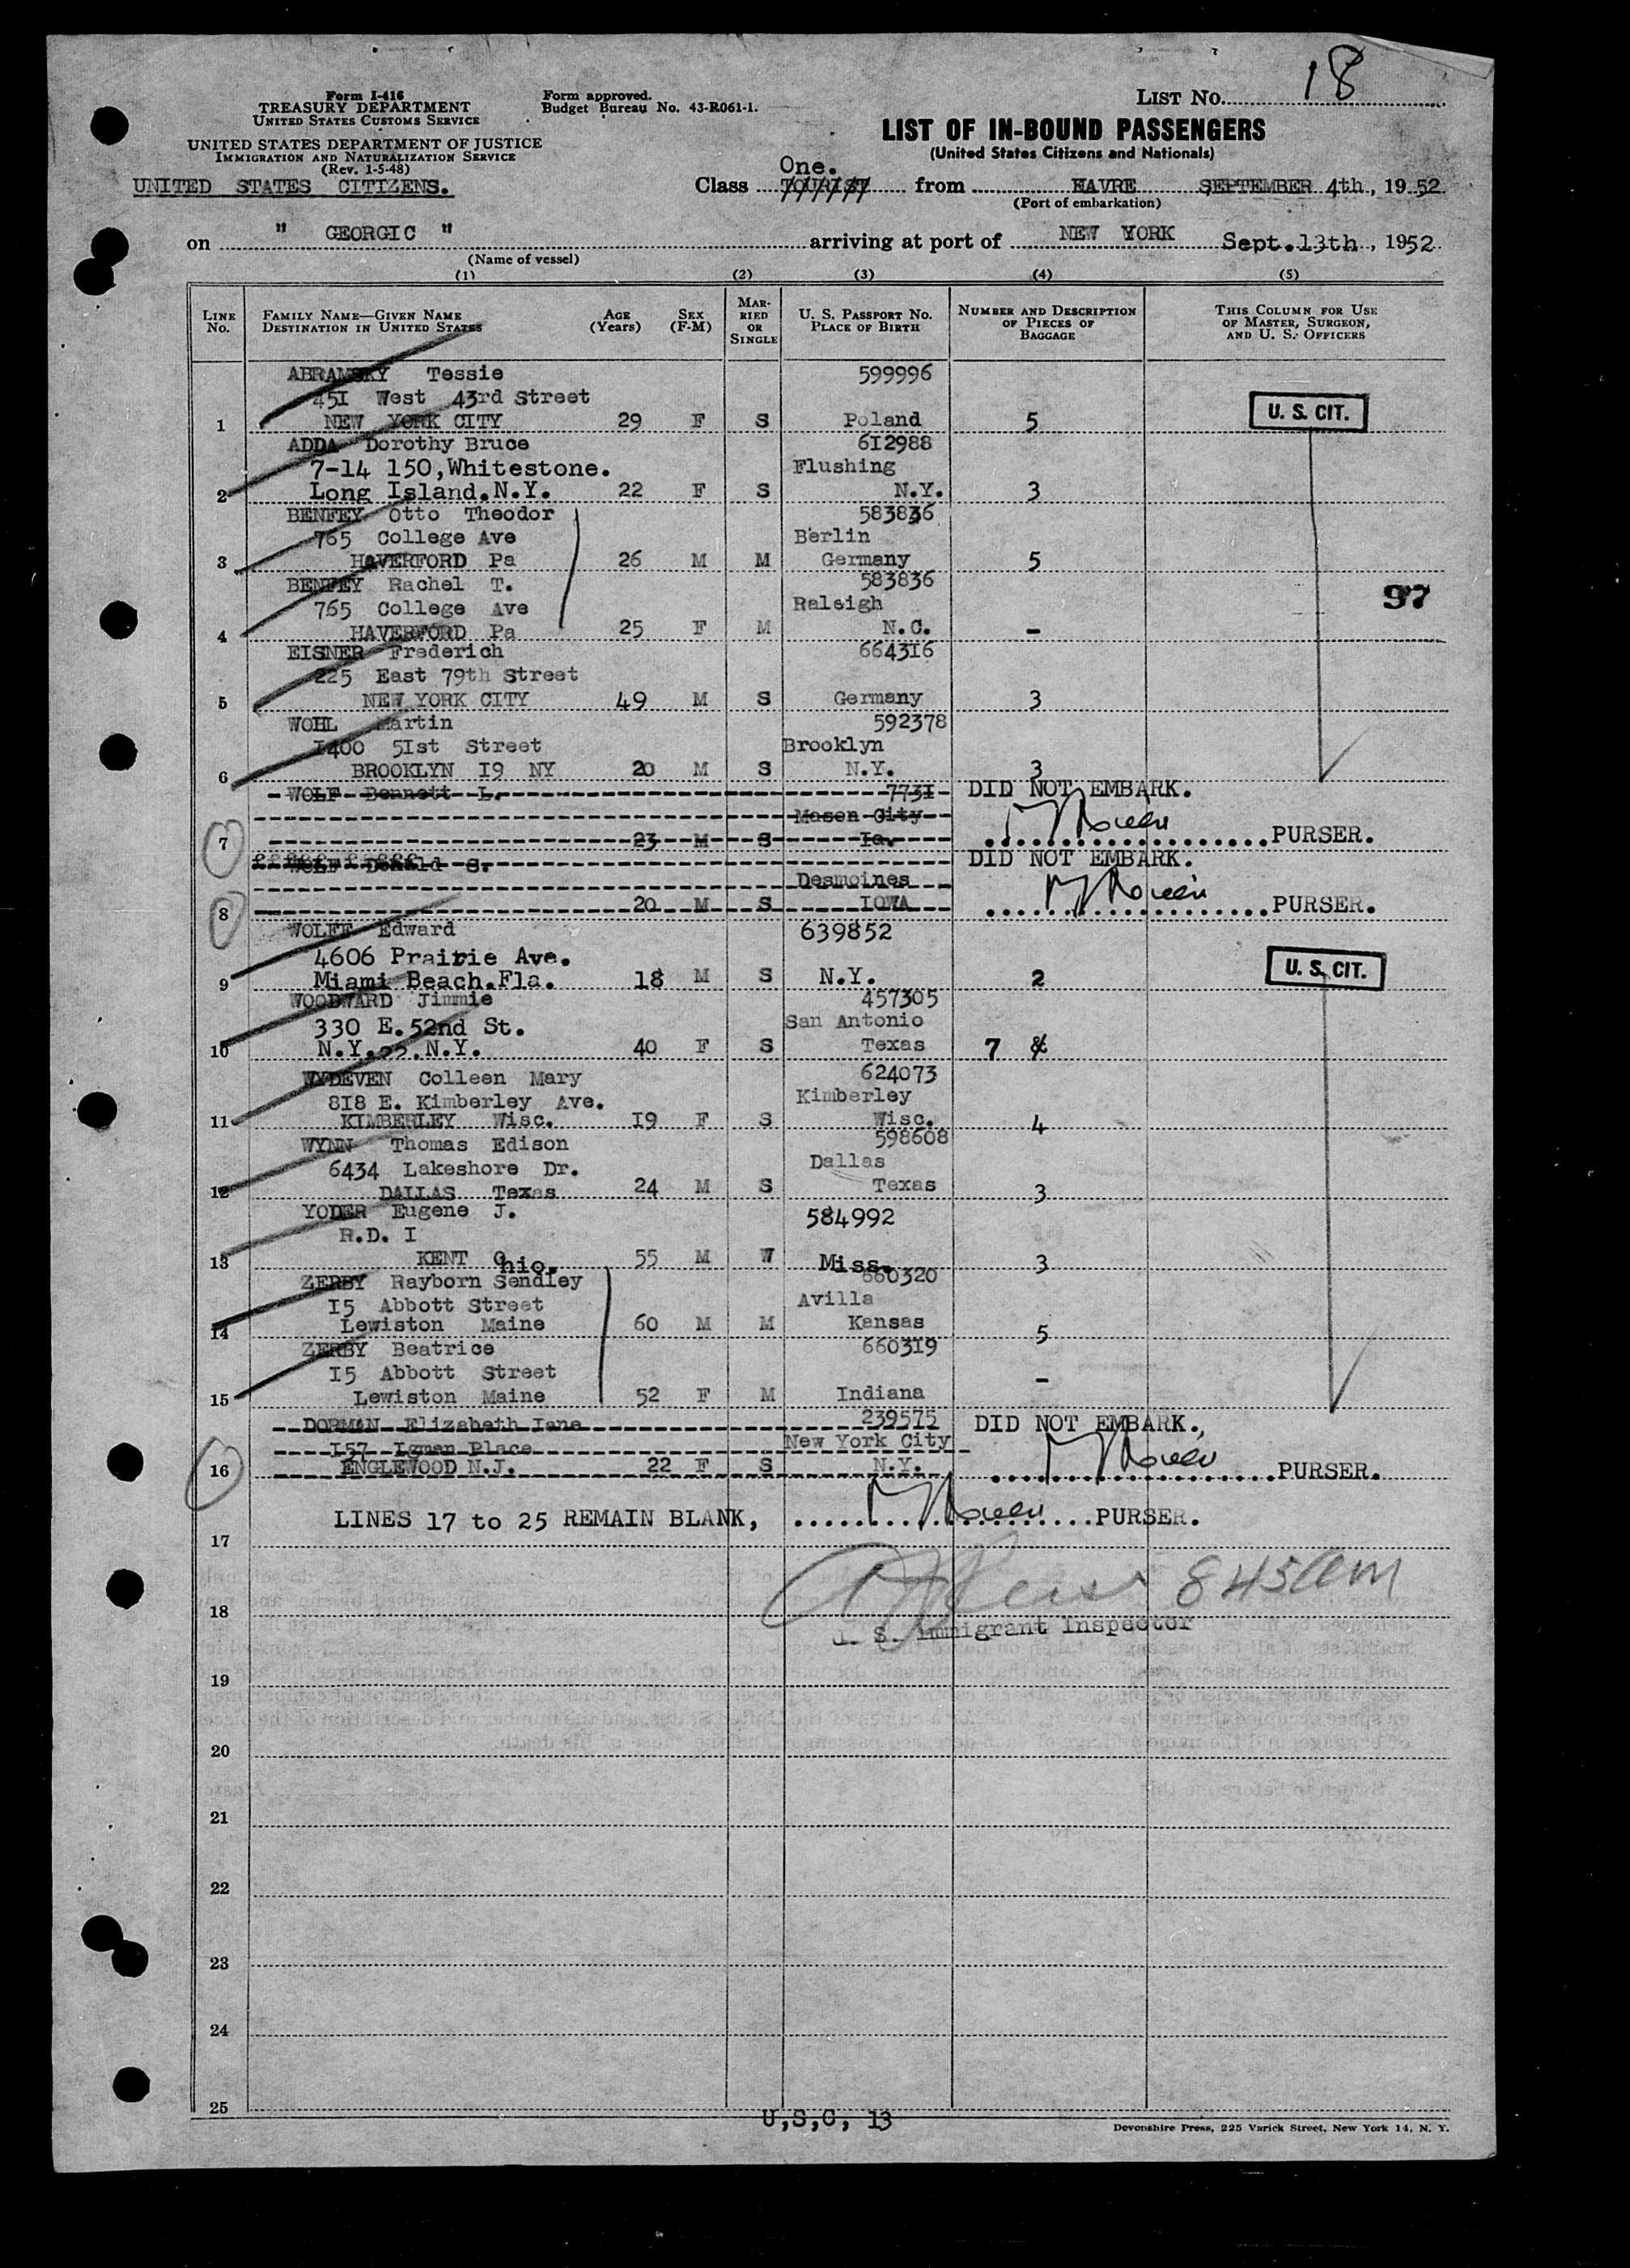 Form I-416
TREASURY DEPARTMENT
UNITED STATES CUSTOMS SERVICE
UNITED STATES DEPARTMENT OF JUSTICE
IMMIGRATION AND NATURALIZATION SERVICE
(Rev. 1-5-48)
UNITED STATES CITIZENS.
Form approved.
Budget Bureau No. 43-R061-1.
LIST No. 18
LIST OF IN-BOUND PASSENGERS
(United States Citizens and Nationals)
One.
Class TOURIST from HAVRE SEPTEMBER 4th, 1952
(Port of embarkation)
on " GEORGIC " arriving at port of NEW YORK Sept.13th, 1952
(Name of vessel)
(1) (2) (3) (4) (5)
LINE No. FAMILY NAME—GIVEN NAME DESTINATION IN UNITED STATES AGE (Years) SEX (F-M) MARRIED OR SINGLE U. S. PASSPORT No. PLACE OF BIRTH NUMBER AND DESCRIPTION OF PIECES OF BAGGAGE THIS COLUMN FOR USE OF MASTER, SURGEON, AND U. S. OFFICERS
ABRAMSKY Tessie 599996
451 West 43rd Street U. S. CIT.
1 NEW YORK CITY 29 F S Poland 5
ADDA Dorothy Bruce 612988
7-14 150,Whitestone. Flushing
2 Long Island.N.Y. 22 F S N.Y. 3
BENFEY Otto Theodor 583836
765 College Ave Berlin
3 HAVERFORD Pa 26 M M Germany 5
BENFEY Rachel T. 583836
765 College Ave Raleigh 97
4 HAVERFORD Pa 25 F M N.C. -
EISNER Frederich 664316
225 East 79th Street
5 NEW YORK CITY 49 M S Germany 3
WOHL Martin 592378
1400 51st Street Brooklyn
6 BROOKLYN 19 NY 20 M S N.Y. 3
WOLF Bennett L. 7731 DID NOT EMBARK.
Mason City
7 23 M S Ia. PURSER.
WOLF Donald S. DID NOT EMBARK.
Desmoines
8 20 M S IOWA PURSER.
WOLFF Edward 639852
4606 Prairie Ave. U. S. CIT.
9 Miami Beach.Fla. 18 M S N.Y. 2
WOODWARD Jimmie 457305
330 E.52nd St. San Antonio
10 N.Y.22.N.Y. 40 F S Texas 7
WYDEVEN Colleen Mary 624073
818 E. Kimberley Ave. Kimberley
11 KIMBERLEY Wisc. 19 F S Wisc. 4
WYNN Thomas Edison 598608
6434 Lakeshore Dr. Dallas
12 DALLAS Texas 24 M S Texas 3
YODER Eugene J. 584992
R.D. 1
13 KENT Ohio. 55 M W Miss. 3
ZERBY Rayborn Sendley 660320
15 Abbott Street Avilla
14 Lewiston Maine 60 M M Kansas 5
ZERBY Beatrice 660319
15 Abbott Street
15 Lewiston Maine 52 F M Indiana -
DORMAN Elizabeth Iane 239575 DID NOT EMBARK.,
157 Igman Place New York City
16 ENGLEWOOD N.J. 22 F S N.Y. PURSER.
LINES 17 to 25 REMAIN BLANK, PURSER.
17
845am
18
U. S. Immigrant Inspector
19
20
21
22
23
24
25
U,S,C, 13
Devonshire Press, 225 Varick Street, New York 14, N. Y.